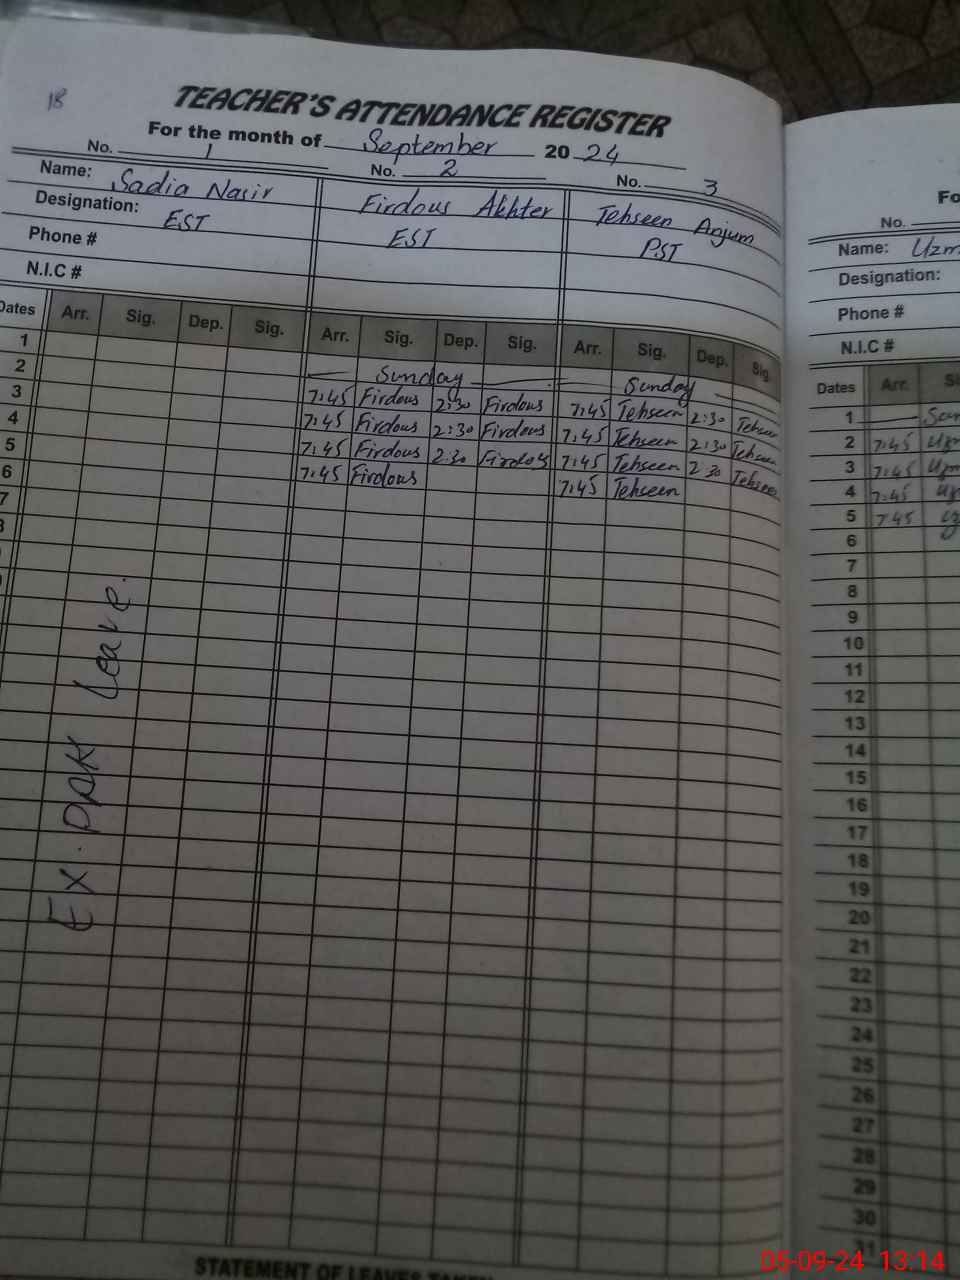 18
TEACHER'S ATTENDANCE REGISTER
For the month of September 2024
No. 1 No. 2 No. 3
Name: Sadia Nasir Firdous Akhter Tehseen Anjum
Designation: EST EST PST
Phone #
N.I.C #
Dates Arr. Sig. Dep. Sig. Arr. Sig. Dep. Sig. Arr. Sig. Dep. Sig.
1 Sunday Sunday
2 7:45 Firdous 2:30 Firdous 7:45 Tehseen 2:30 Tehseen
3 7:45 Firdous 2:30 Firdous 7:45 Tehseen 2:30 Tehseen
4 7:45 Firdous 2:30 Firdous 7:45 Tehseen 2:30 Tehseen
5 7:45 Firdous 7:45 Tehseen
6
7
Ex. PAK Leave.
STATEMENT OF LEAVES TAKEN
Fo
No.
Name: Uzm
Designation:
Phone #
N.I.C #
Dates Arr. S
1 Sun
2 7:45 Uzm
3 7:45 Uzm
4 7:45
5 7:45
6
7
8
9
10
11
12
13
14
15
16
17
18
19
20
21
22
23
24
25
26
27
28
29
30
31
05-09-24 13:14